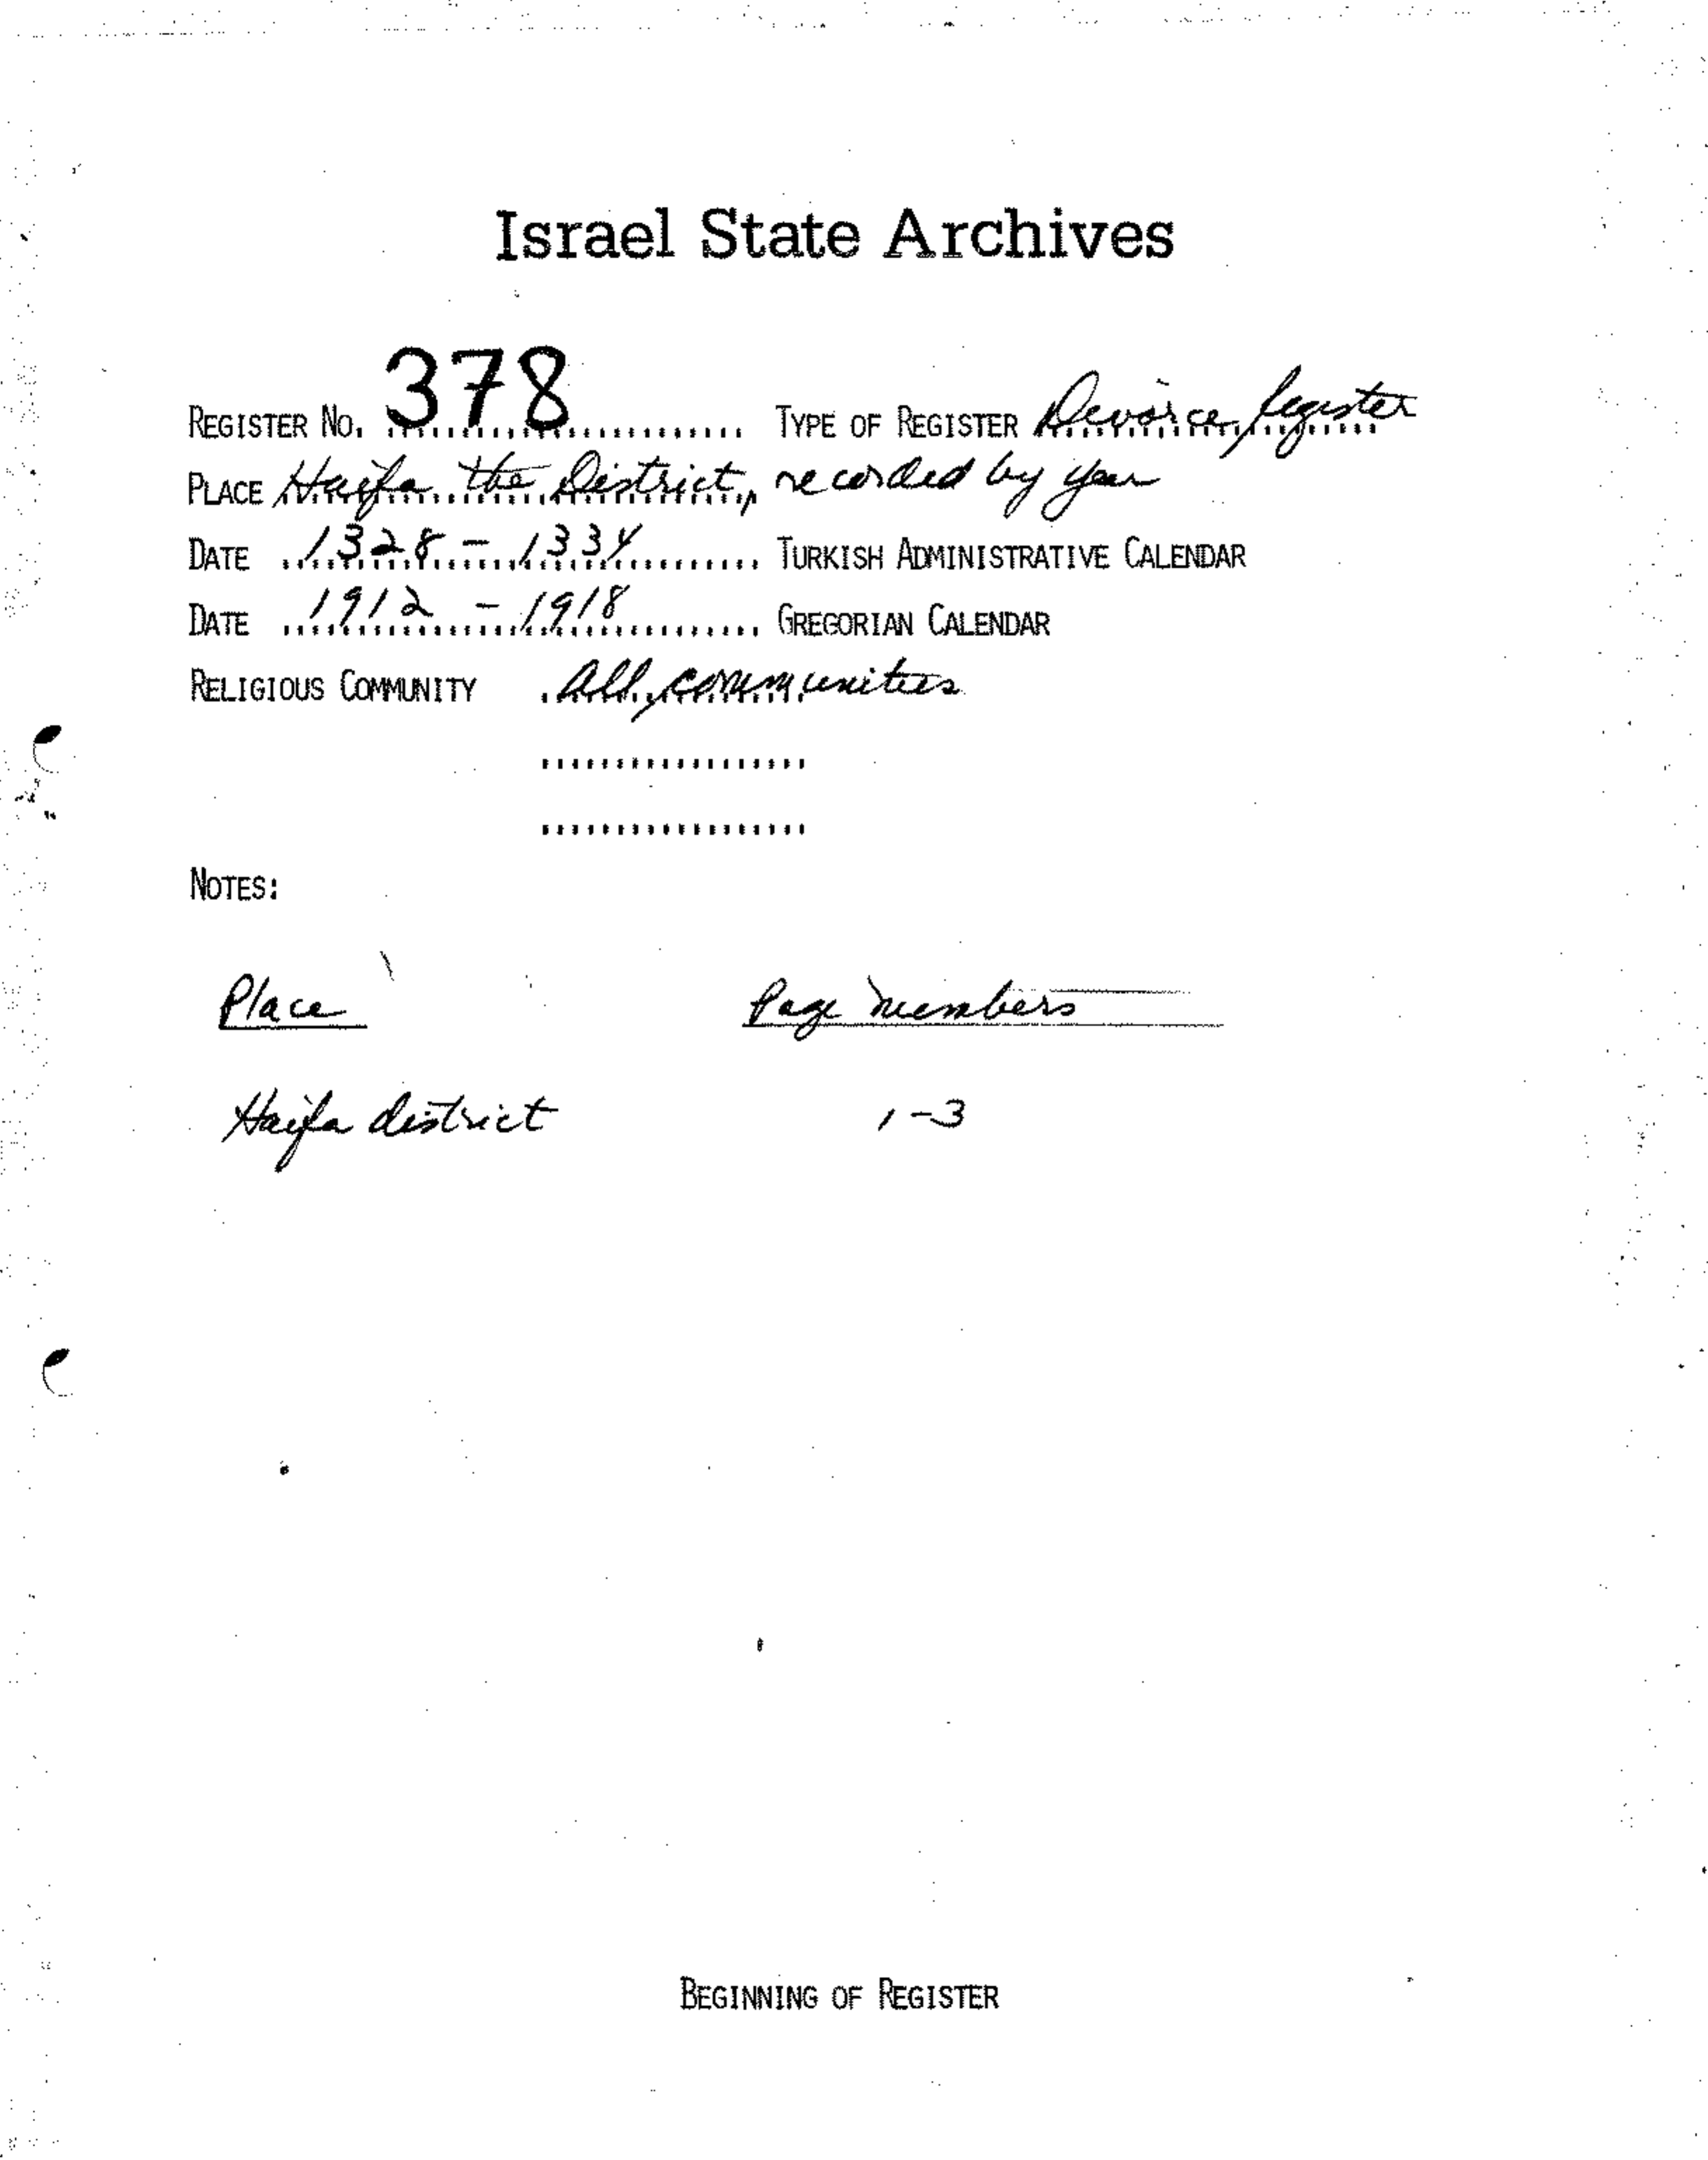 Israel State Archives
REGISTER NO. 378 TYPE OF REGISTER Devorce, register
PLACE Haifa the District, recorded by year
DATE 1328 - 1334 TURKISH ADMINISTRATIVE CALENDAR
DATE 1912 - 1918 GREGORIAN CALENDAR
RELIGIOUS COMMUNITY All communities
NOTES:
Place Page numbers
Haifa district 1-3
BEGINNING OF REGISTER